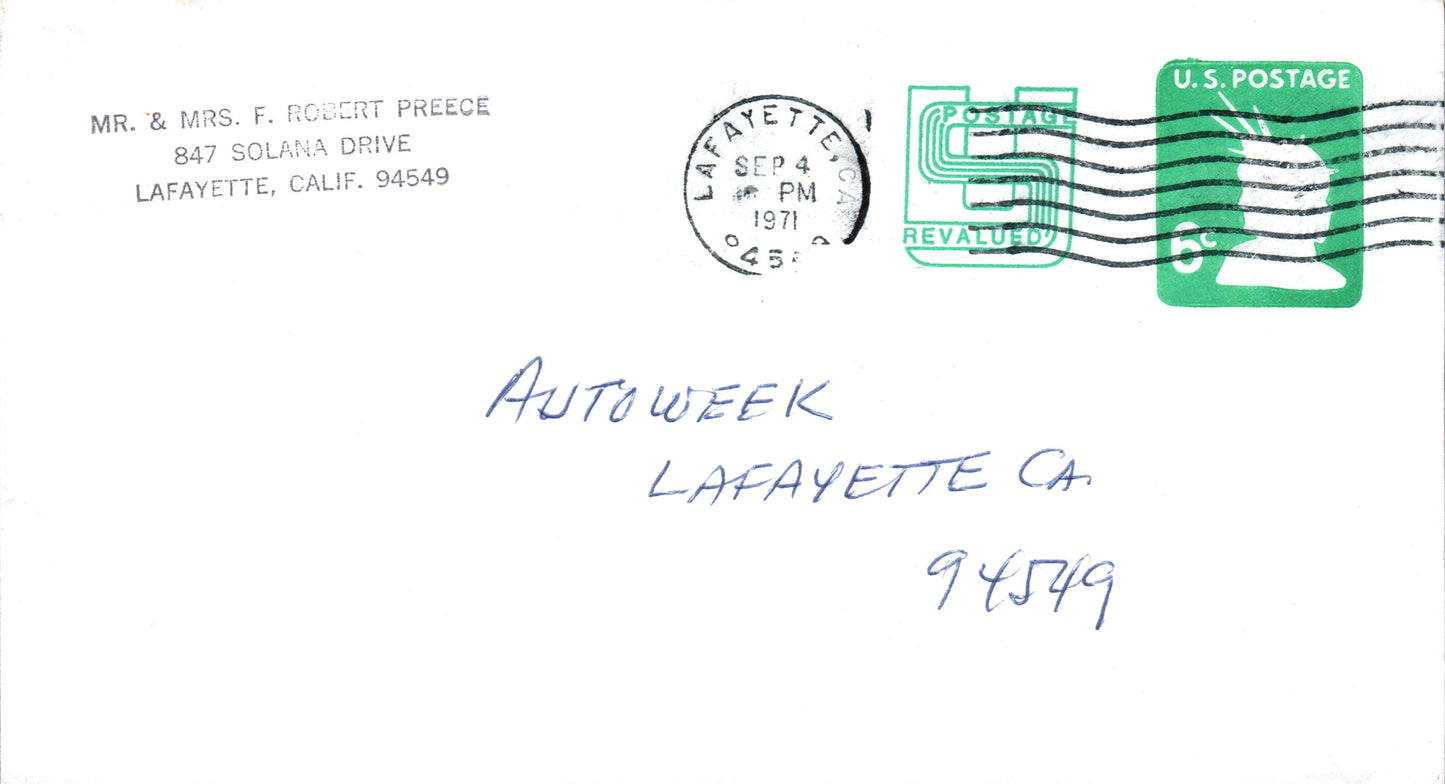 MR. & MRS. F. ROBERT PREECE
847 SOLANA DRIVE
LAFAYETTE, CALIF. 94549
LAFAYETTE, CA
SEP 4
PM
1971
U.S. POSTAGE
POSTAGE
REVALUED
6c
AUTOWEEK
LAFAYETTE CA.
94549